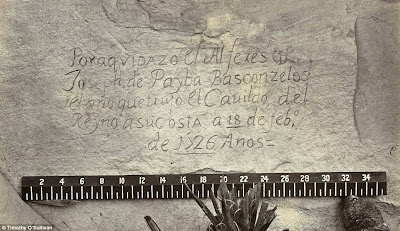 Poraqvi Pazo el Alferes Dn
Joseph de Payba Basconzelos
el año que trujo el Cavildo del
Reyno a su costa a 18 de feb.º
de 1526 Años=
2 4 6 8 10 12 14 16 18 20 22 24 26 28 30 32 34
© Timothy O'Sullivan